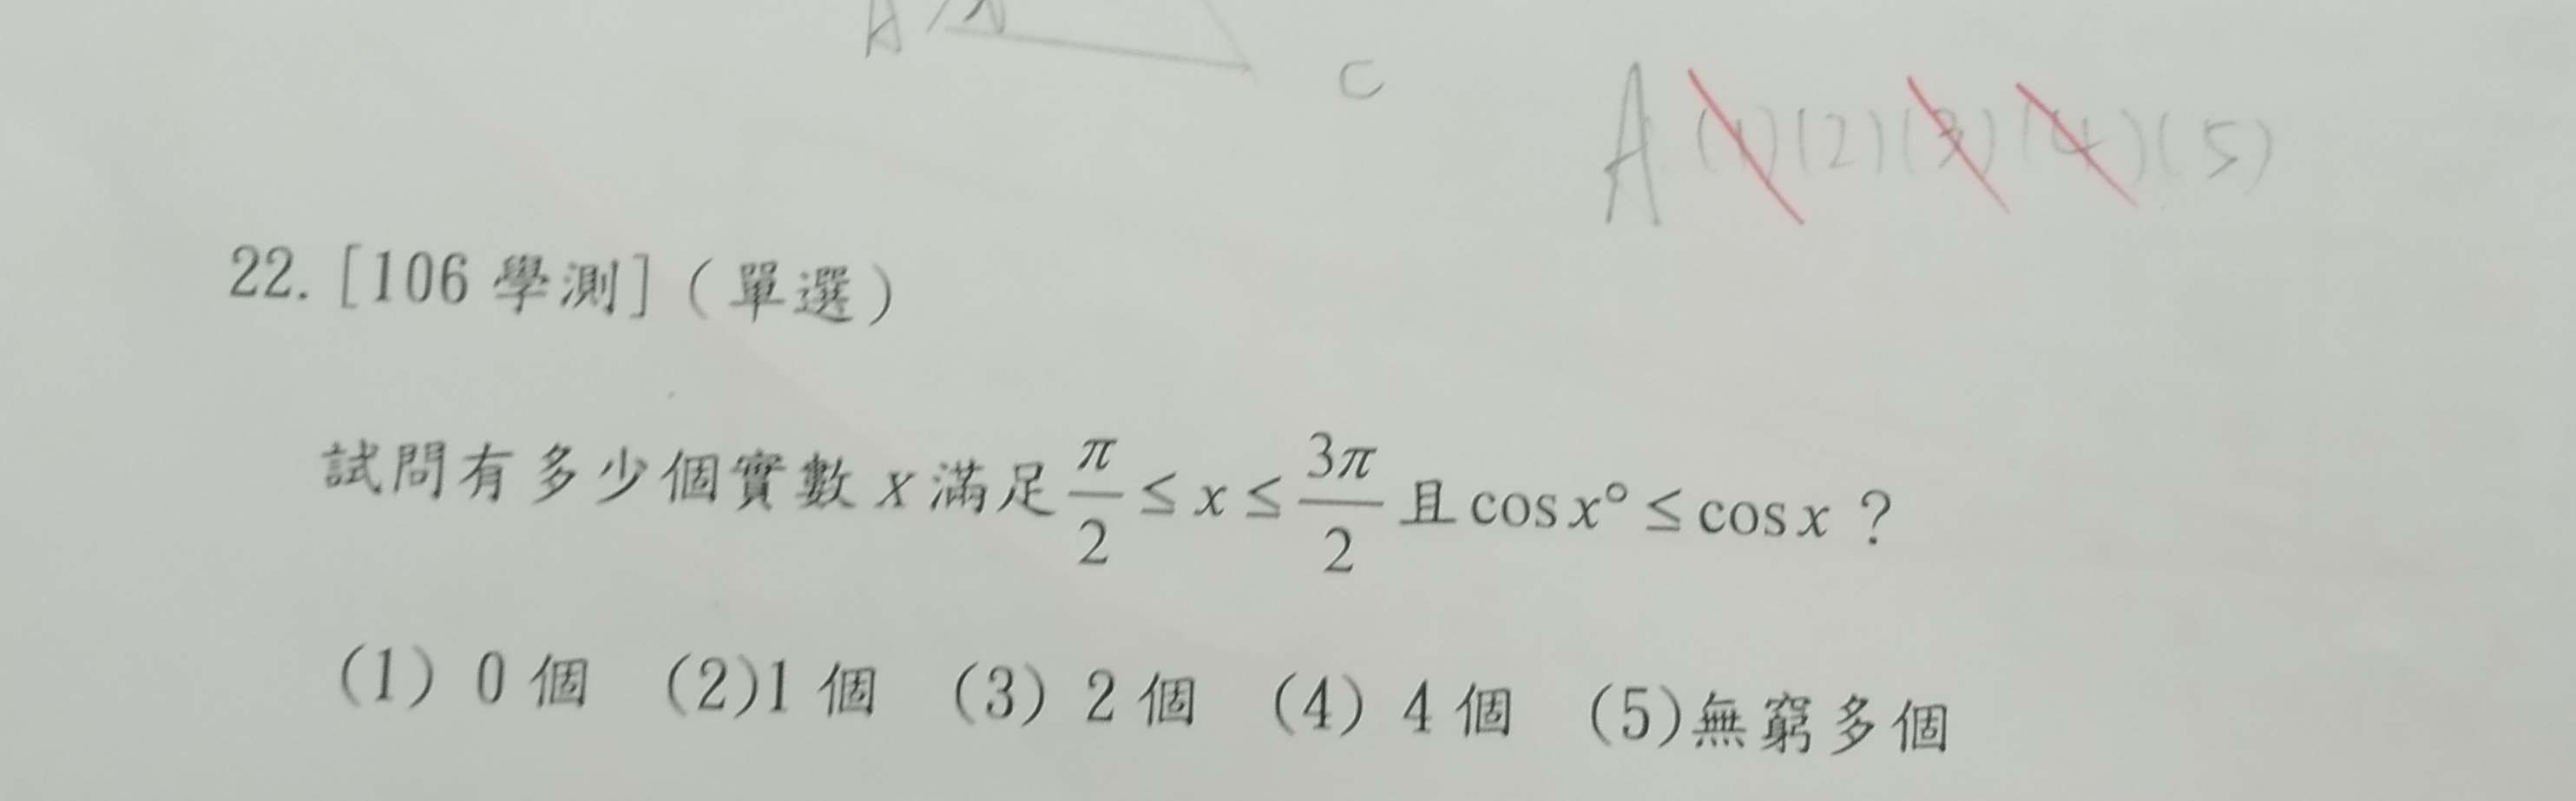 A
C
A (1) (2) (3) (4) (5)
22. [106 學測] (單選)
試問有多少個實數 x 滿足 π/2 ≤ x ≤ 3π/2 且 cos x° ≤ cos x ?
(1) 0 個 (2)1 個 (3) 2 個 (4) 4 個 (5)無窮多個